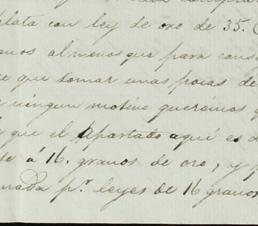 plata con ley de oro de 35.
anos al menos que para cons
e que tomar unas pocas de
ningun motivo queremos q
que el Apartado aqui es d
se á 16. granos de oro, y p
nada pr. leyes de 16 granos